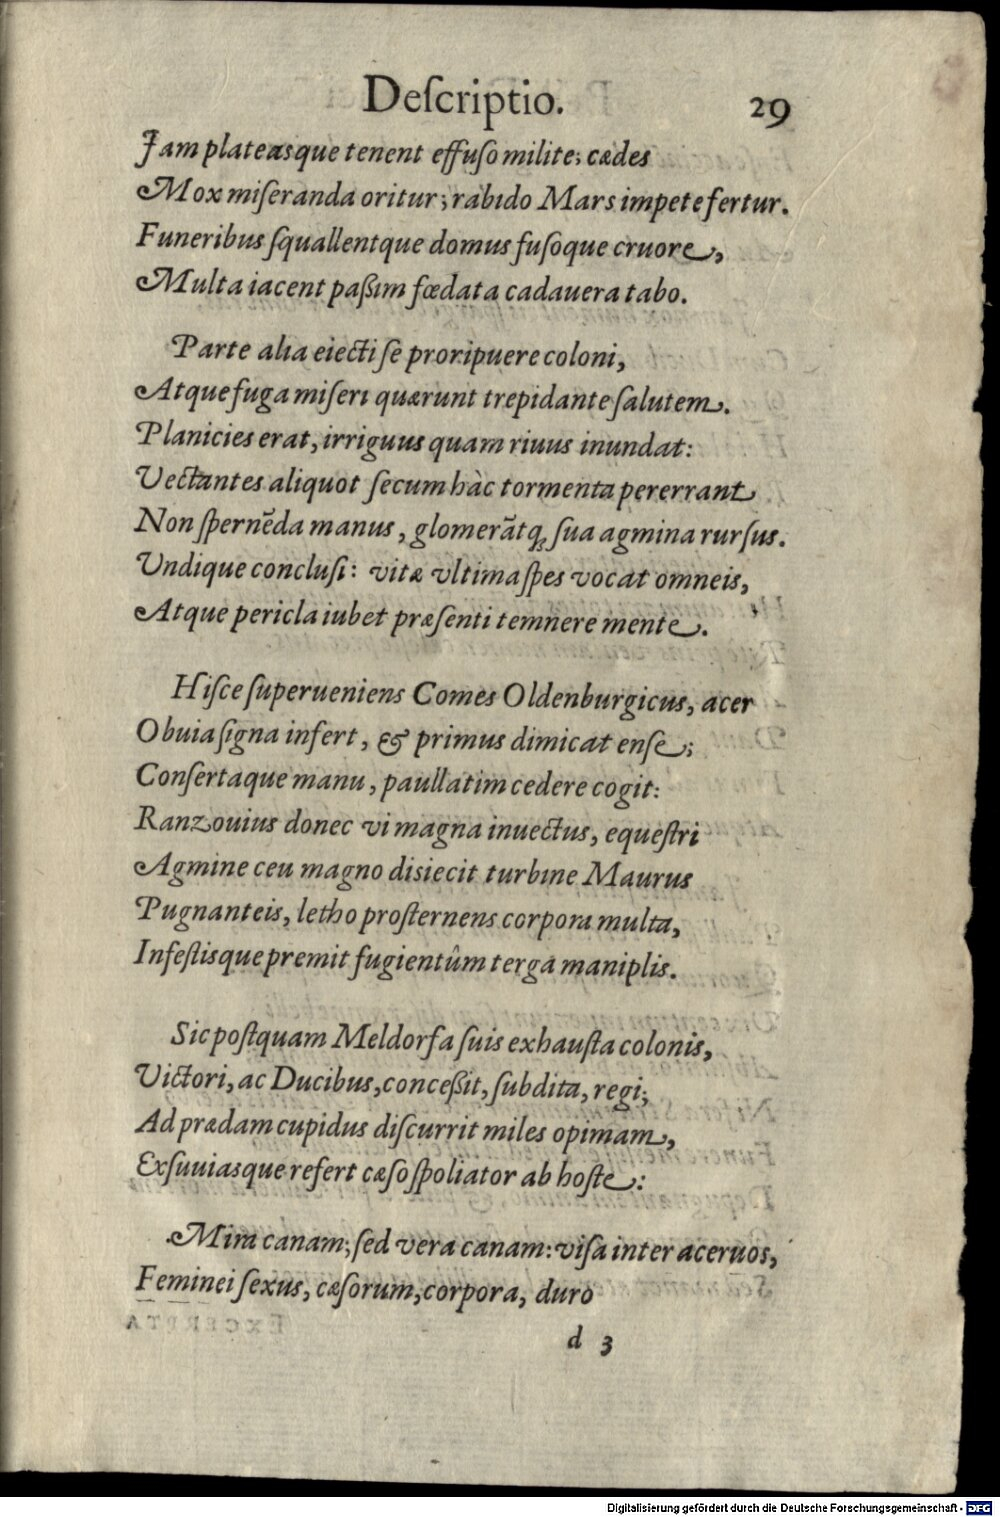 Deſcriptio. 29
Jam plateasque tenent effuſo milite; cædes
Mox miſeranda oritur; rabido Mars impete fertur.
Funeribus ſquallentque domus fuſoque cruore,
Multa iacent paßim fœdata cadauera tabo.
Parte alia eiecti ſe proripuere coloni,
Atque fuga miſeri quærunt trepidante ſalutem.
Planicies erat, irriguus quam riuus inundat:
Vectantes aliquot ſecum hàc tormenta pererrant
Non ſpernēda manus, glomerātq; ſua agmina rurſus.
Undique concluſi: vitæ vltima ſpes vocat omneis,
Atque pericla iubet præſenti temnere mente.
Hiſce ſuperueniens Comes Oldenburgicus, acer
Obuia ſigna infert, & primus dimicat enſe;
Conſertaque manu, paullatim cedere cogit:
Ranzouius donec vi magna inuectus, equeſtri
Agmine ceu magno disiecit turbine Maurus
Pugnanteis, letho proſternens corpora multa,
Infeſtisque premit fugientûm terga maniplis.
Sic poſtquam Meldorfa ſuis exhauſta colonis,
Victori, ac Ducibus, conceßit, ſubdita, regi;
Ad prædam cupidus diſcurrit miles opimam,
Exſuuiasque refert cæſo ſpoliator ab hoſte:
Mira canam; ſed vera canam: viſa inter aceruos,
Feminei ſexus, cæſorum, corpora, duro
d 3
Digitalisierung gefördert durch die Deutsche Forschungsgemeinschaft - DFG